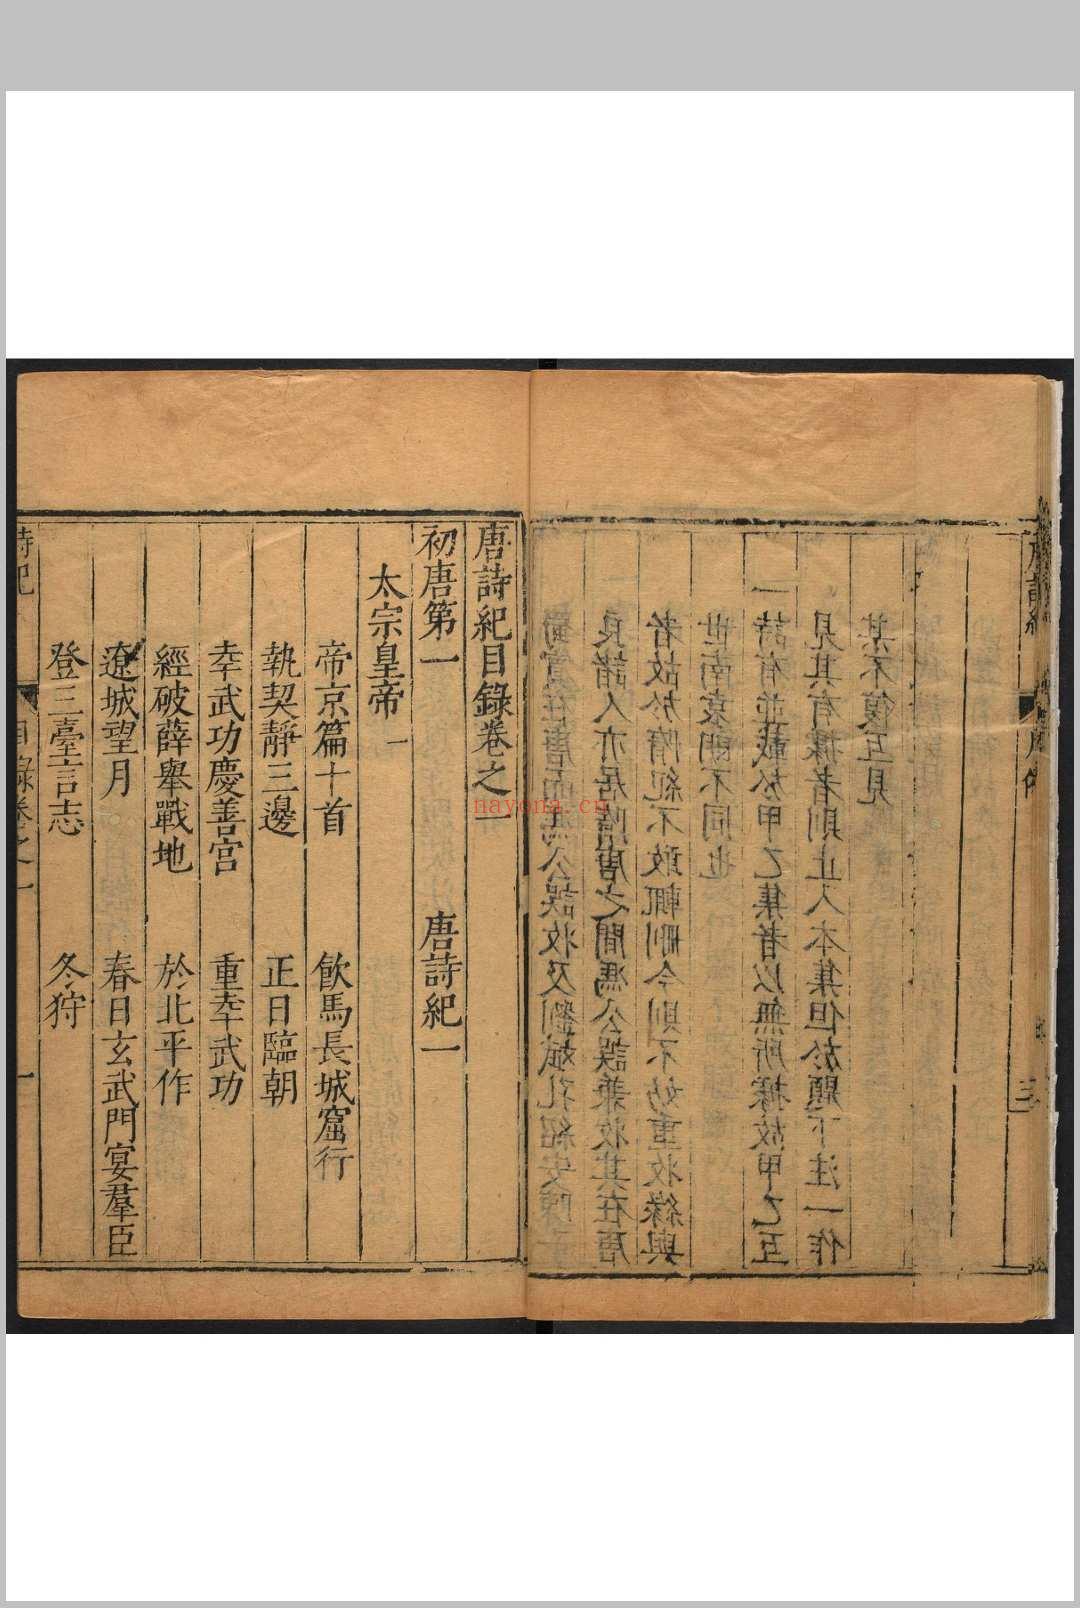 唐詩紀
三
在唐而馮公誤收及劉斌孔紹安陳子
良諸人亦居隋唐之間馮公誤兼收其在唐
者故於隋紀不敢輒刪今則不妨重收緣與
世南袁朗不同也
一詩有並載於甲乙集者以無所據故甲乙互
見其有據者則止入本集但於題下注一作
某不復互見
唐詩紀目錄卷之一
初唐第一 唐詩紀一
太宗皇帝一
帝京篇十首 飲馬長城窟行
執契靜三邊 正日臨朝
幸武功慶善宮 重幸武功
經破薛舉戰地 於北平作
遼城望月 春日玄武門宴羣臣
登三臺言志 冬狩
詩紀 目錄卷之一 一
nayona.cn